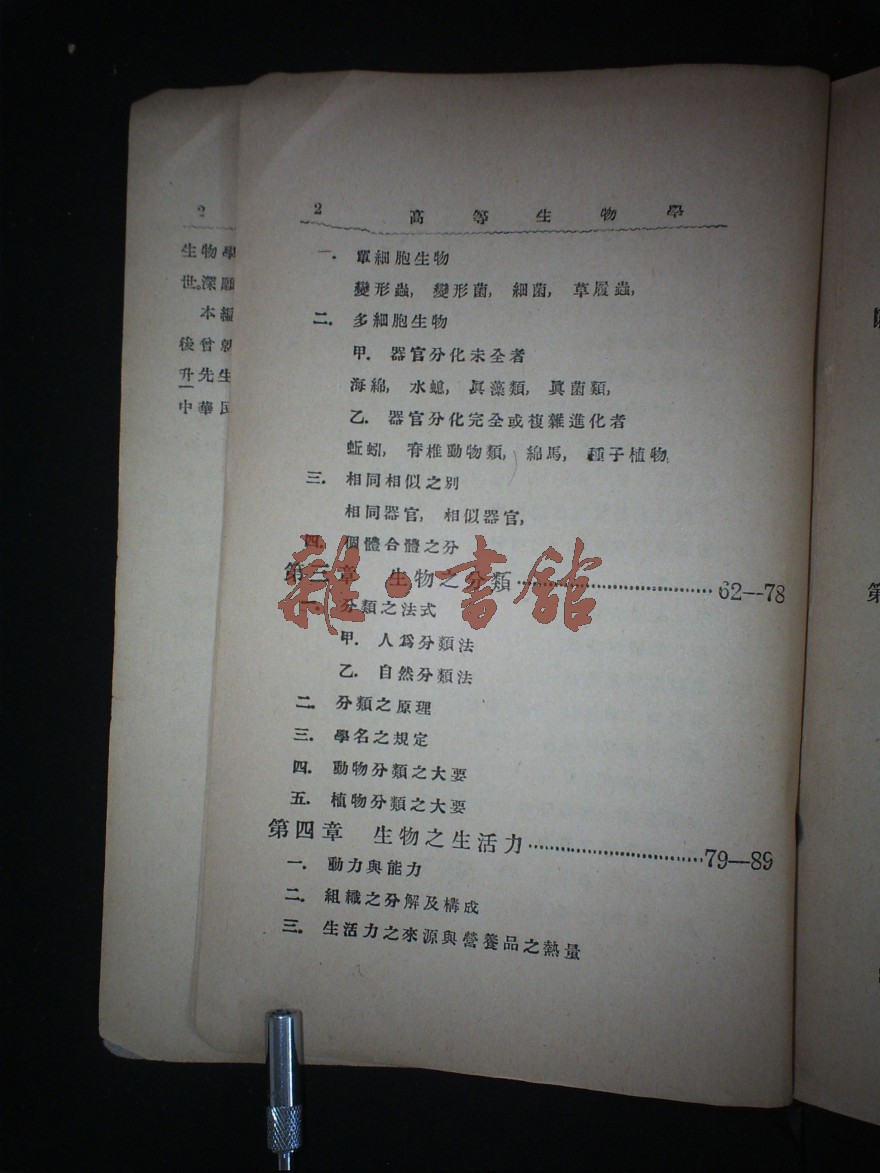 2 高等生物學
一. 單細胞生物
變形蟲, 變形菌, 細菌, 草履蟲,
二. 多細胞生物
甲. 器官分化未全者
海綿, 水螅, 眞藻類, 眞菌類,
乙. 器官分化完全或複雜進化者
蚯蚓, 脊椎動物類, 綿馬, 種子植物,
三. 相同相似之別
相同器官, 相似器官,
四. 個體合體之分
第三章 生物之分類 62—78
一. 分類之法式
甲. 人爲分類法
乙. 自然分類法
二. 分類之原理
三. 學名之規定
四. 動物分類之大要
五. 植物分類之大要
第四章 生物之生活力 79—89
一. 動力與能力
二. 組織之分解及構成
三. 生活力之來源與營養品之熱量
2
生物學
世。深願
本編
後曾
升先生
中華民
雜·書館
第